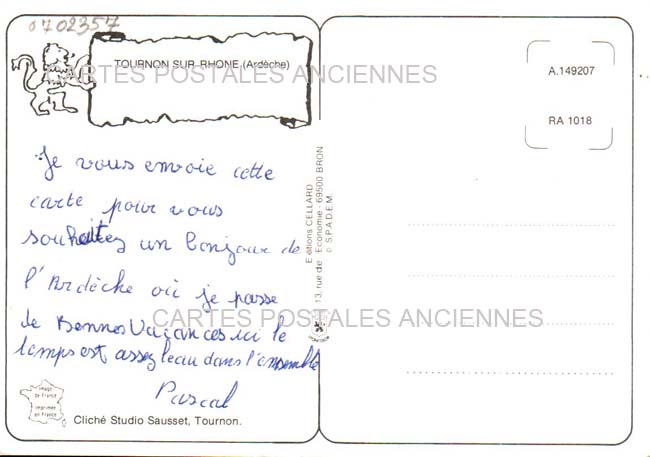 0702357
TOURNON SUR RHONE (Ardèche)
CARTES POSTALES ANCIENNES
A.149207
RA 1018
Je vous envoie cette
carte pour vous
souhaitez un bonjour de
l'Ardèche où je passe
de Bonnes Vacances ici le
temps est assez beau dans l'ensemble
Pascal
Image
de France
Imprimer
en France
Cliché Studio Sausset, Tournon.
Editions CELLARD
13, rue de Economie - 69500 BRON
© S.P.A.D.E.M.
CARTES POSTALES ANCIENNES